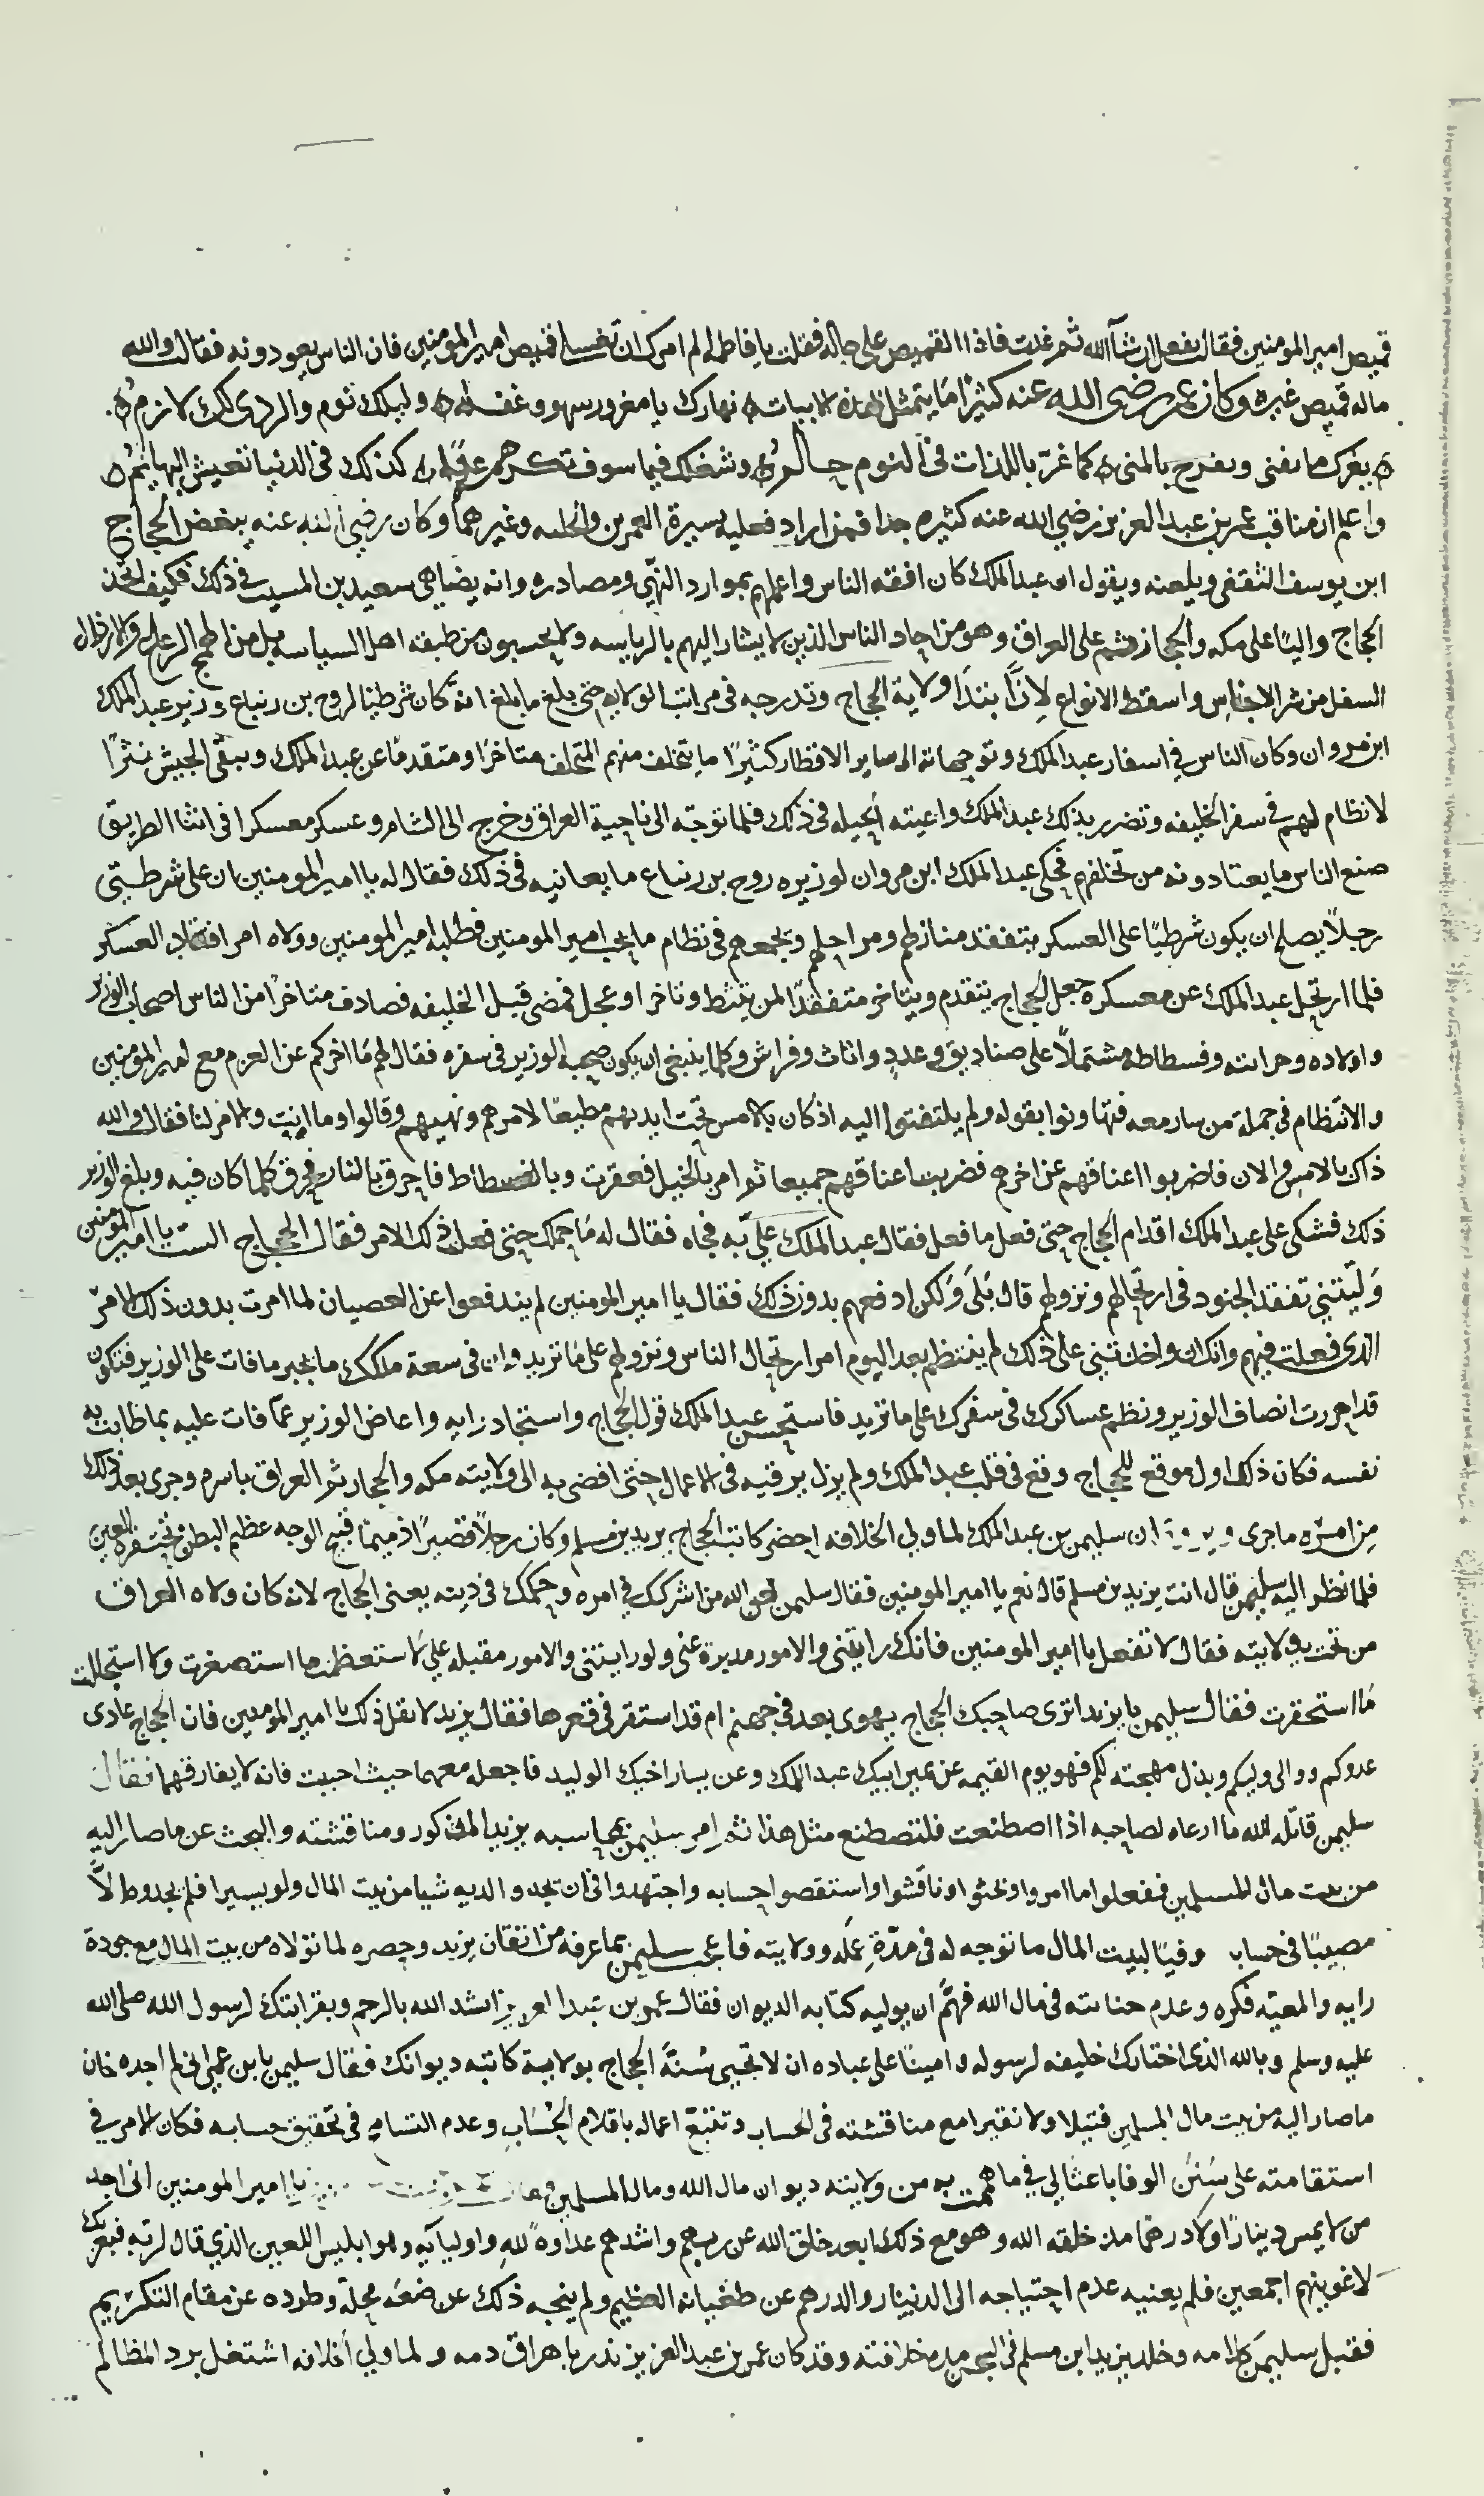 قميص امير المومنين فقالت نفعل ان شآ الله ثم غدت فاذا القميص على حاله فقلت يا فاطمه الم امركى ان تغسلى قميص امير المومنين فان الناس يعودونه فقالت والله
ماله قميص غيره وكان عمر رضي الله عنه كثيرًا مّا يتمثل بهذه الابيات نهارك يا مغرور سهو وغفلة وليلك نوم والردى لك لازم
يغرك ما يفنى وتفرح بالمنى كما غرّ باللذات في النوم حالم وشغلك فيما سوف تكره غبه كذلك في الدنيا تعيش البهائم
واعلم ان مناقب عمر بن عبد العزيز رضي الله عنه كثيره جدا فمن اراد فعليه بسيرة العمرين والحليه وغيرهما وكان رضي الله عنه يبغض الحجاج
ابن يوسف الثقفي ويلعنه ويقول ان عبد الملك كان افقه الناس واعلمهم بموارد النهي ومصادره وانه يضاهي سعيد بن المسيب في ذلك فكيف اتخذ
الحجاج واليًا على مكه والحجاز ثم على العراق وهو من احاد الناس الذين لا يشار اليهم بالرياسه ولا يحسبون من طبقه اهل السياسه بل من الهمج الرعاع والارذال
السفل من شر الاجناس واسقط الانواع لانّ ابتدآ ولاية الحجاج وتدرجه في مراتب الولايه حتى بلغ ما بلغ انه كان شرطيا لروح بن زنباع وزير عبد الملك
ابن مروان وكان الناس في اسفار عبد الملك وتوجهاته الى ساير الاقطار كثيرًا ما يتخلف منهم المتخلف متاخرًا ومتقدمًا عن عبد الملك ويبقى الجيش نثرًا
لا نظام لهم في سفر الخليفه وتضرر بذلك عبد الملك واعيته الحيله في ذلك فلما توجّه الى ناحية العراق وخرج الى الشام وعسكر معسكرا في اثنا الطريق
صنع الناس ما يعتادونه من تخلفهم فحكى عبد الملك ابن مروان لوزيره روح بن زنباع ما يعانيه في ذلك فقال له يا امير المومنين ان على شرطتي
رجلاً يصلح ان يكون شرطيًا على العسكر يتفقد منازلهم ومراحلهم ويجمعهم في نظام ما يحب امير المومنين فطلبه امير المومنين وولاه امر افتقاد العسكر
فلما ارتحل عبد الملك عن معسكره جعل الحجاج يتقدم ويتاخر متفقدًا لمن يتثبط وتاخر او عجل فمضى قبل الخليفه فصادف متاخرًا من الناس اصحاب الوزير
واولاده وخزانته وفسطاطه مشتملاً على صناديق وعدد واثاث وفراش وكلما ينبغي ان يكون صحبه الوزير في سفره فقال لهم مّا اخركم عن العزم مع امير المومنين
والانتظام في جملة من سار معه فتهاونوا بقوله ولم يلتفتوا اليه اذ كان بالامس تحت ايديهم مطيعًا لامرهم ونهيهم وقالوا وما انت والامر لنا فقال والله
ذاك بالامس والان فاضربوا اعناقهم عن اخرهم فضربت اعناقهم جميعا ثم امر بالخيل فعقرت وبالفسطاط فاحرق بالنار فحرق كلما كان فيه وبلغ الوزير
ذلك فشكى على عبد الملك اقدام الحجاج حتى فعل ما فعل فقال عبد الملك عليّ به فجاه فقال له مّا حملك حتى فعلت ذلك الامر فقال الحجاج الست يا امير المومنين
وليّتني تفقد الجنود في ارتحالهم ونزولهم قال بلى ولكن ادفعهم بدون ذلك فقال يا امير المومنين لم يندفعوا عن العصيان لما امرت بدون ذلك الامر
الذي فعلت فيهم وانك ان واخذتني على ذلك لم ينتظم بعد اليوم امر ارتحال الناس ونزولهم على مّا تريد وان في سعة ملكك ما يجبر ما فات على الوزير فتكون
قد احرزت انصاف الوزير ونظم عساكرك في سفرك على ما تريد فاستحسن عبد الملك قول الحجاج واستجاد رايه واعاض الوزير عمّا فات عليه بما طابت به
نفسه فكان ذلك اول موقع للحجاج وقع في قلب عبد الملك ولم يزل يرقيه في الاعمال حتى افضى به الى ولايته مكه والحجاز ثم العراق باسره وجرى بعد ذلك
من امره ما جرى ان سليمن بن عبد الملك لما ولي الخلافه احضر كاتب الحجاج يزيد بن مسلم وكان رجلاً قصيرًا ذميمًا قبيح الوجه عظيم البطن تحتقره العين
فلما نظر اليه سليمن قال انت يزيد بن مسلم قال نعم يا امير المومنين فقال سليمن لعن الله من اشركك في امره وحكمك في ديته يعني الحجاج لانه كان ولاه العراق
من تحت ولايته فقال لا تفعل يا امير المومنين فانك رايتني والامور مدبرة عني ولو رايتني والامور مقبله علي لاستعظمت ما استصغرت ولاستجللت
مّا استحقرت فقال سليمن يا يزيد اترى صاحبك الحجاج يهوى بعد في جهنم ام قد استقر في قعرها فقال يزيد لا تقل ذلك يا امير المومنين فان الحجاج عادى
عدوكم ووالى وليكم وبذل مهجته لكم فهو يوم القيمه عن يمين ابيك عبد الملك وعن يسار اخيك الوليد فاجعله معهما حيث احببت فانه لا يفارقهما فقال
سليمن قاتله الله ما ارعاه لصاحبه اذا اصطنعت فلتصطنع مثل هذا ثم امر سليمن بمحاسبه يزيد المذكور ومناقشته والبحث عن ما صار اليه
من بيت مال المسلمين ففعلوا ما امروا وبحثوا وناقشوا واستقصوا حسابه واجتهدوا في ان تجدوا لديه شيا من بيت المال ولو يسيرا فلم يجدوه الا
مصيبًا في حساب وفيًا لبيت المال ما توجه له في مدّة عمله وولايته فاعجب سليمن بما عرفه من اتقان يزيد وحصره لما تولاه من بيت المال مع جودة
رايه والمعيّه فكره وعدم خيانته في مال الله فهمّ ان يوليه كتابه الديوان فقال عمر بن عبد العزيز انشد الله بالرحم وبقرابتك لرسول الله صلى الله
عليه وسلم وبالله الذي اختارك خليفه لرسوله وامينًا على عباده ان لا تحيى سُنّة الحجاج بولاية كاتبه ديوانك فقال سليمن يا بن عمي اني لم اجده خان
ما صار اليه من بيت مال المسلمين فتيلا ولا نقيرا مع مناقشته في الحساب وتتبّع اعماله باقلام الحُسّاب وعدم التسامح في تحقيق حسابه فكان الامر في
استقامته على سَنَن الوفا باعثا لي في ما هممت به من ولايته ديوان مال الله ومال المسلمين فقال يا امير المومنين اني اجد
من لا يمس دينارًا ولا درهما مذ خلقه الله وهو مع ذلك ابعد خلق الله عن ربهم واشدهم عداوه لله واوليآيه وهو ابليس اللعين الذي قال لربه فبعزتك
لاغوينهم اجمعين فلم يعنيه عدم احتياجه الى الدينار والدرهم عن طغيانه العظيم ولم ينجه ذلك عن ضعه محله وطرده عن مقام التكريم
فقبل سليمن كلامه وخلد يزيد ابن مسلم في السجن مده خلافته وقد كان عمر بن عبد العزيز نذر باهراق دمه ولما ولي الخلافه اشتغل برد المظالم